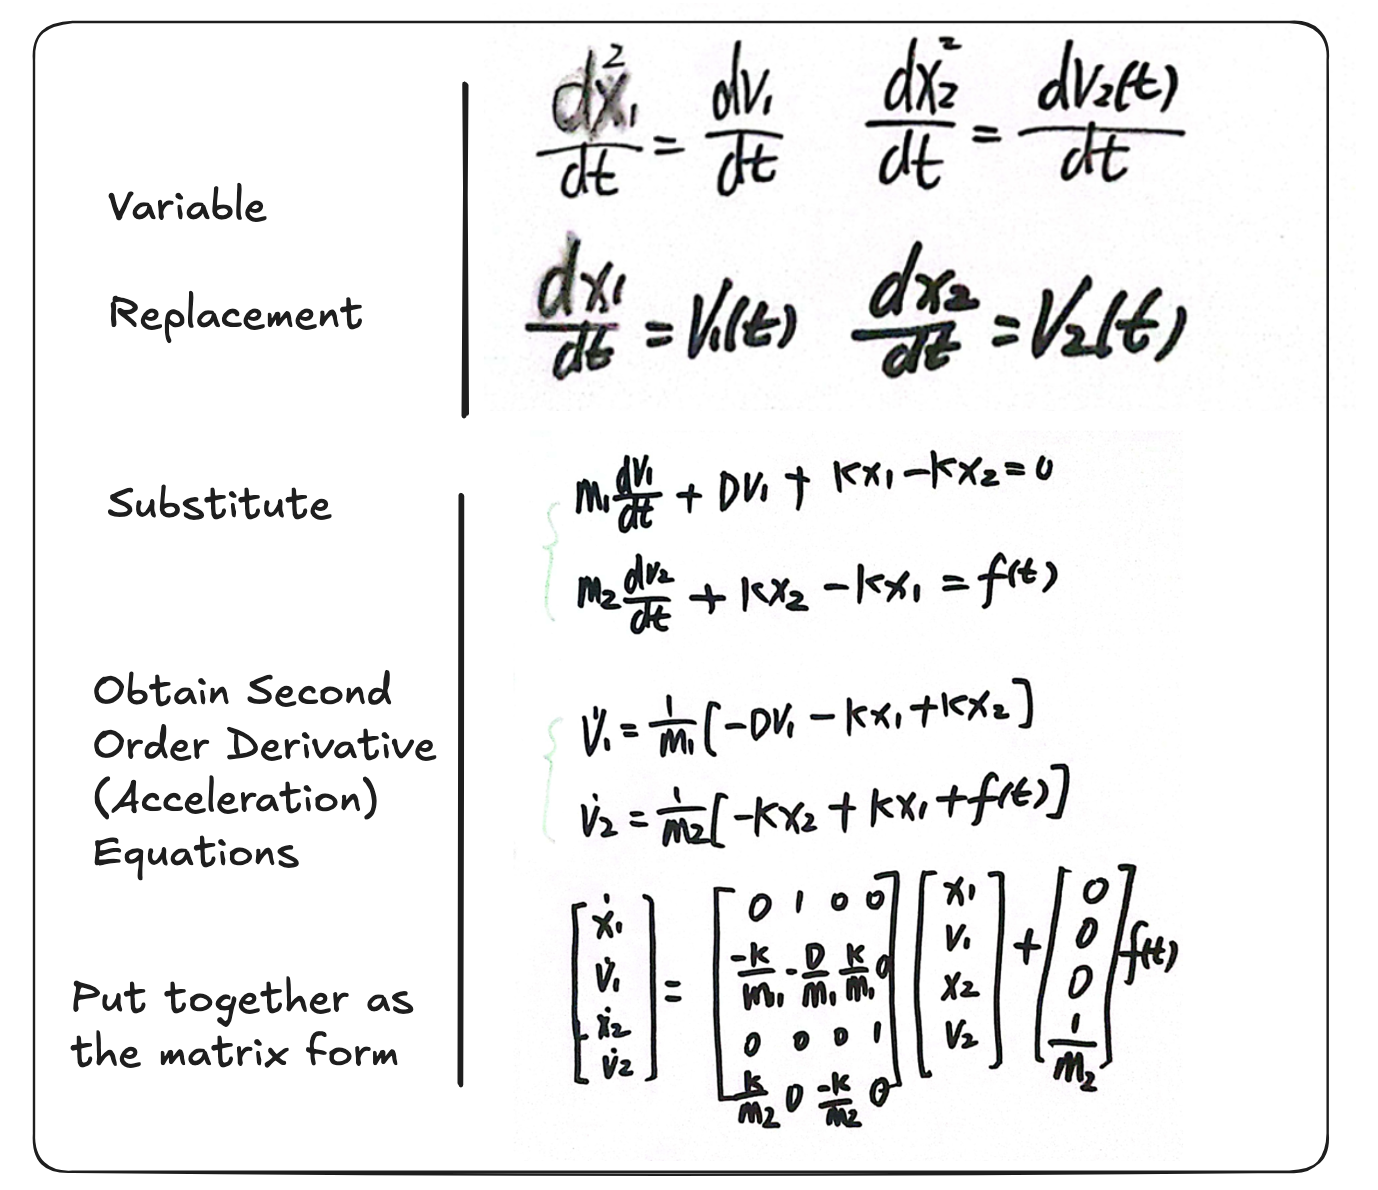 dx₁²/dt = dv₁/dt   dx₂²/dt = dv₂(t)/dt
Variable
Replacement
dx₁/dt = V₁(t)   dx₂/dt = V₂(t)
Substitute
m₁ dv₁/dt + Dv₁ + kx₁ - kx₂ = 0
m₂ dv₂/dt + kx₂ - kx₁ = f(t)
Obtain Second
Order Derivative
(Acceleration)
Equations
v̇₁ = 1/m₁ [-Dv₁ - kx₁ + kx₂]
v̇₂ = 1/m₂ [-kx₂ + kx₁ + f(t)]
Put together as
the matrix form
[ẋ₁; v̇₁; ẋ₂; v̇₂] = [0 1 0 0; -k/m₁ -D/m₁ k/m₁ 0; 0 0 0 1; k/m₂ 0 -k/m₂ 0] [x₁; v₁; x₂; v₂] + [0; 0; 0; 1/m₂] f(t)